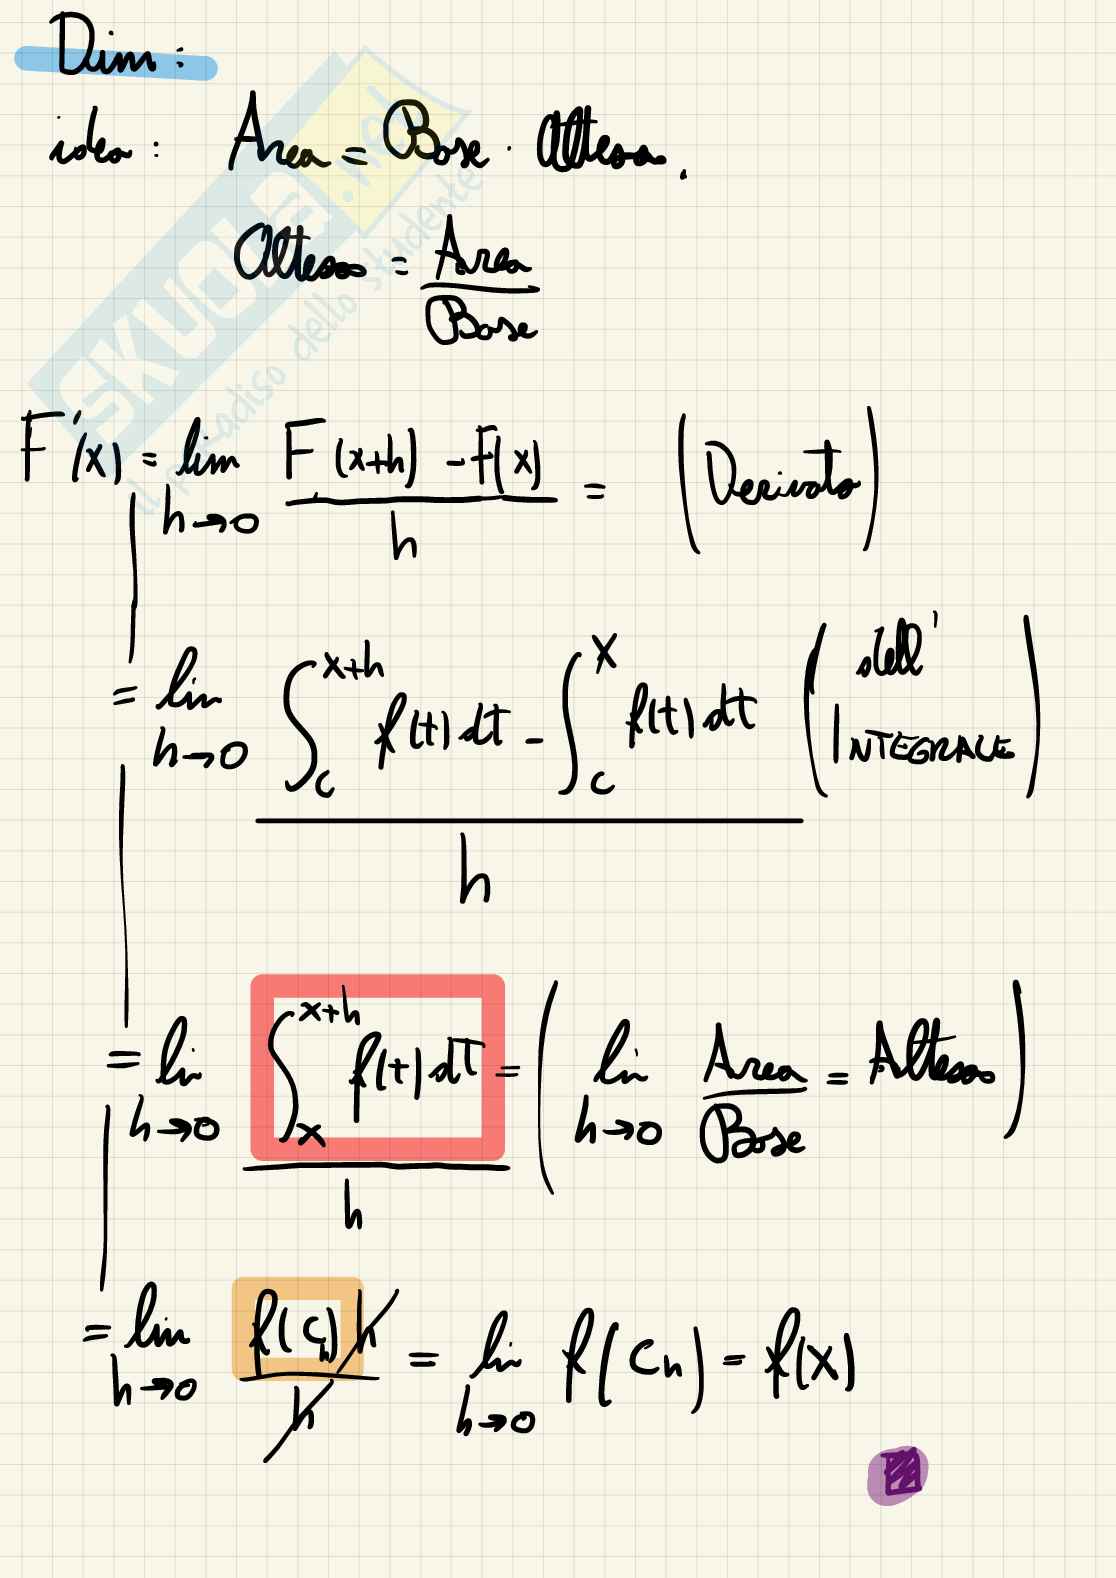 Dim:
idea: Area = Base · Altezza.
Altezza = Area / Base
F'(x) = lim h→0 F(x+h) - F(x) / h = (Derivata)
= lim h→0 ∫c x+h f(t) dt - ∫c x f(t) dt / h (dell' INTEGRALE)
= lim h→0 ∫x x+h f(t) dt / h = (lim h→0 Area / Base = Altezza)
= lim h→0 f(ch) h / h = lim h→0 f(ch) = f(x)
SKUOLA.net
il paradiso dello studente